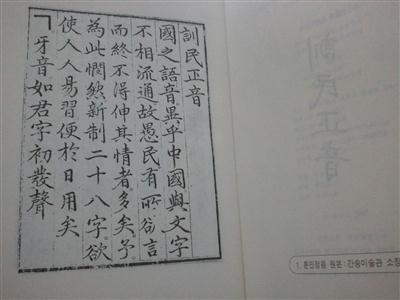 訓民正音
國之語音異乎中國與文字
不相流通故愚民有所欲言
而終不得伸其情者多矣予
為此憫然新制二十八字欲
使人人易習便於日用矣
ㄱ牙音如君字初發聲
訓民正音
1. 훈민정음 원본 : 간송미술관 소장